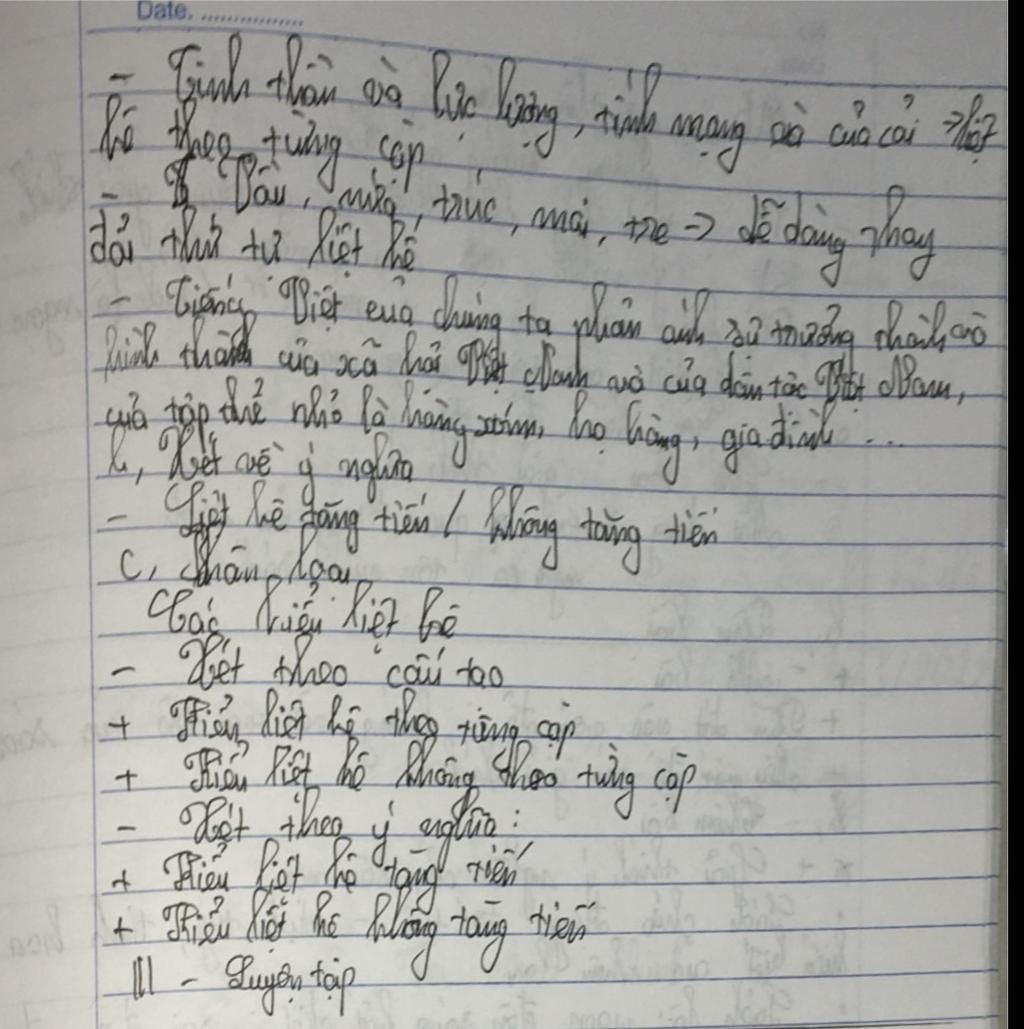 Date. ................
- Tinh thần và lực lượng, tính mạng và của cải => liệt
kê theo từng cặp
- Dầu, nứa, trúc, mai, tre => dễ dàng thay
đổi thứ tự liệt kê
- Tiếng Việt của chúng ta phản ánh sự trưởng thành và
hình thành của xã hội Việt Nam và của dân tộc Việt Nam,
của tập thể nhỏ là hàng xóm, họ hàng, gia đình ...
b, Xét về ý nghĩa
- Liệt kê tăng tiến / không tăng tiến
c, Phân loại
Các kiểu liệt kê
- Xét theo cấu tạo
+ Kiểu liệt kê theo từng cặp
+ Kiểu liệt kê không theo từng cặp
- Xét theo ý nghĩa:
+ Kiểu liệt kê tăng tiến
+ Kiểu liệt kê không tăng tiến
III - Luyện tập